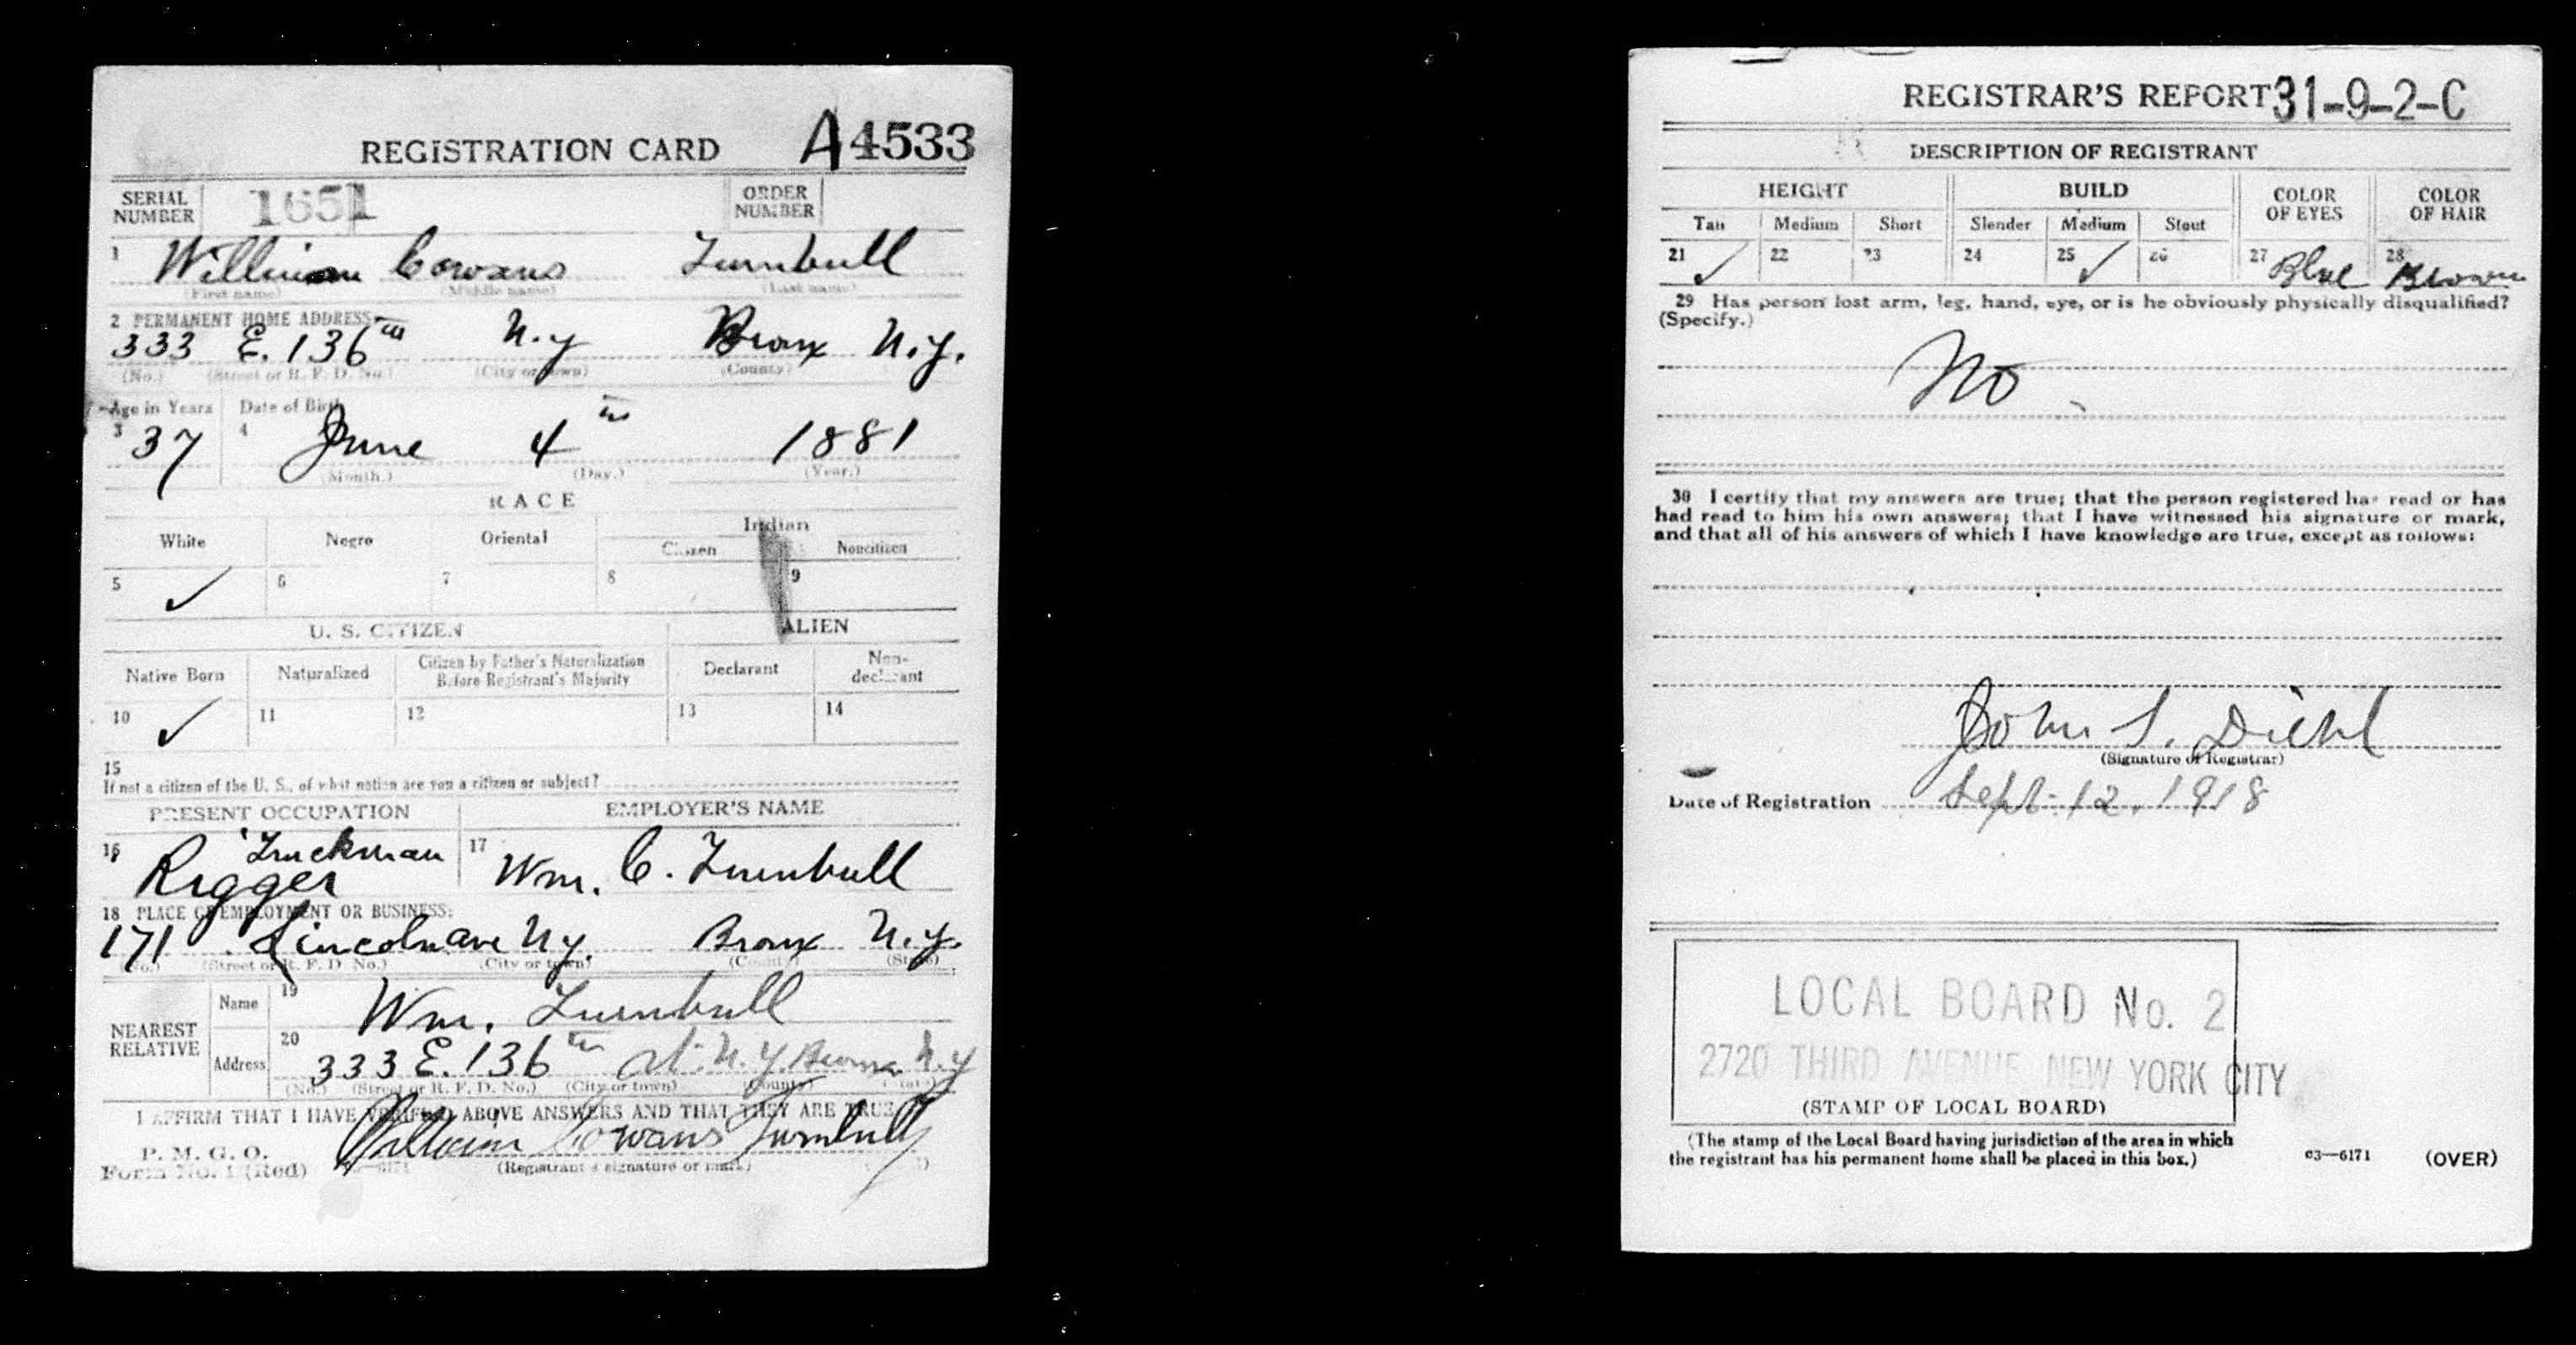 REGISTRATION CARD A4533
SERIAL NUMBER 1651 ORDER NUMBER
1 William Cowans Turnbull
(First name) (Middle name) (Last name)
2 PERMANENT HOME ADDRESS:
333 E. 136th N.Y Bronx N.Y.
(No.) (Street or R. F. D. No.) (City or town) (County)
Age in Years Date of Birth
3 37 4 June 4th 1881
(Month.) (Day.) (Year.)
RACE
White Negro Oriental Indian
Citizen Noncitizen
5 ✓ 6 7 8 9
U. S. CITIZEN ALIEN
Native Born Naturalized Citizen by Father's Naturalization Before Registrant's Majority Declarant Non-declarant
10 ✓ 11 12 13 14
15
If not a citizen of the U. S., of what nation are you a citizen or subject?
PRESENT OCCUPATION EMPLOYER'S NAME
16 Truckman Rigger 17 Wm. C. Turnbull
18 PLACE OF EMPLOYMENT OR BUSINESS:
171 Lincoln ave N.y. Bronx N.y.
(No.) (Street or R. F. D. No.) (City or town) (County) (State)
NEAREST RELATIVE
Name 19 Wm. Turnbull
Address 20 333 E. 136th St. N.Y. Bronx N.y
(No.) (Street or R. F. D. No.) (City or town) (County) (State)
I AFFIRM THAT I HAVE VERIFIED ABOVE ANSWERS AND THAT THEY ARE TRUE
P. M. G. O.
Form No. 1 (Red) William Cowans Turnbull
(Registrant's signature or mark)
REGISTRAR'S REPORT 31-9-2-C
DESCRIPTION OF REGISTRANT
HEIGHT BUILD COLOR OF EYES COLOR OF HAIR
Tall Medium Short Slender Medium Stout
21 ✓ 22 23 24 25 ✓ 26 27 Blue 28 Brown
29 Has person lost arm, leg, hand, eye, or is he obviously physically disqualified?
(Specify.)
No
30 I certify that my answers are true; that the person registered has read or has
had read to him his own answers; that I have witnessed his signature or mark,
and that all of his answers of which I have knowledge are true, except as follows:
John S. Diehl
(Signature of Registrar)
Date of Registration Sept. 12, 1918
LOCAL BOARD No. 2
2720 THIRD AVENUE NEW YORK CITY
(STAMP OF LOCAL BOARD)
(The stamp of the Local Board having jurisdiction of the area in which
the registrant has his permanent home shall be placed in this box.)
03—6171 (OVER)